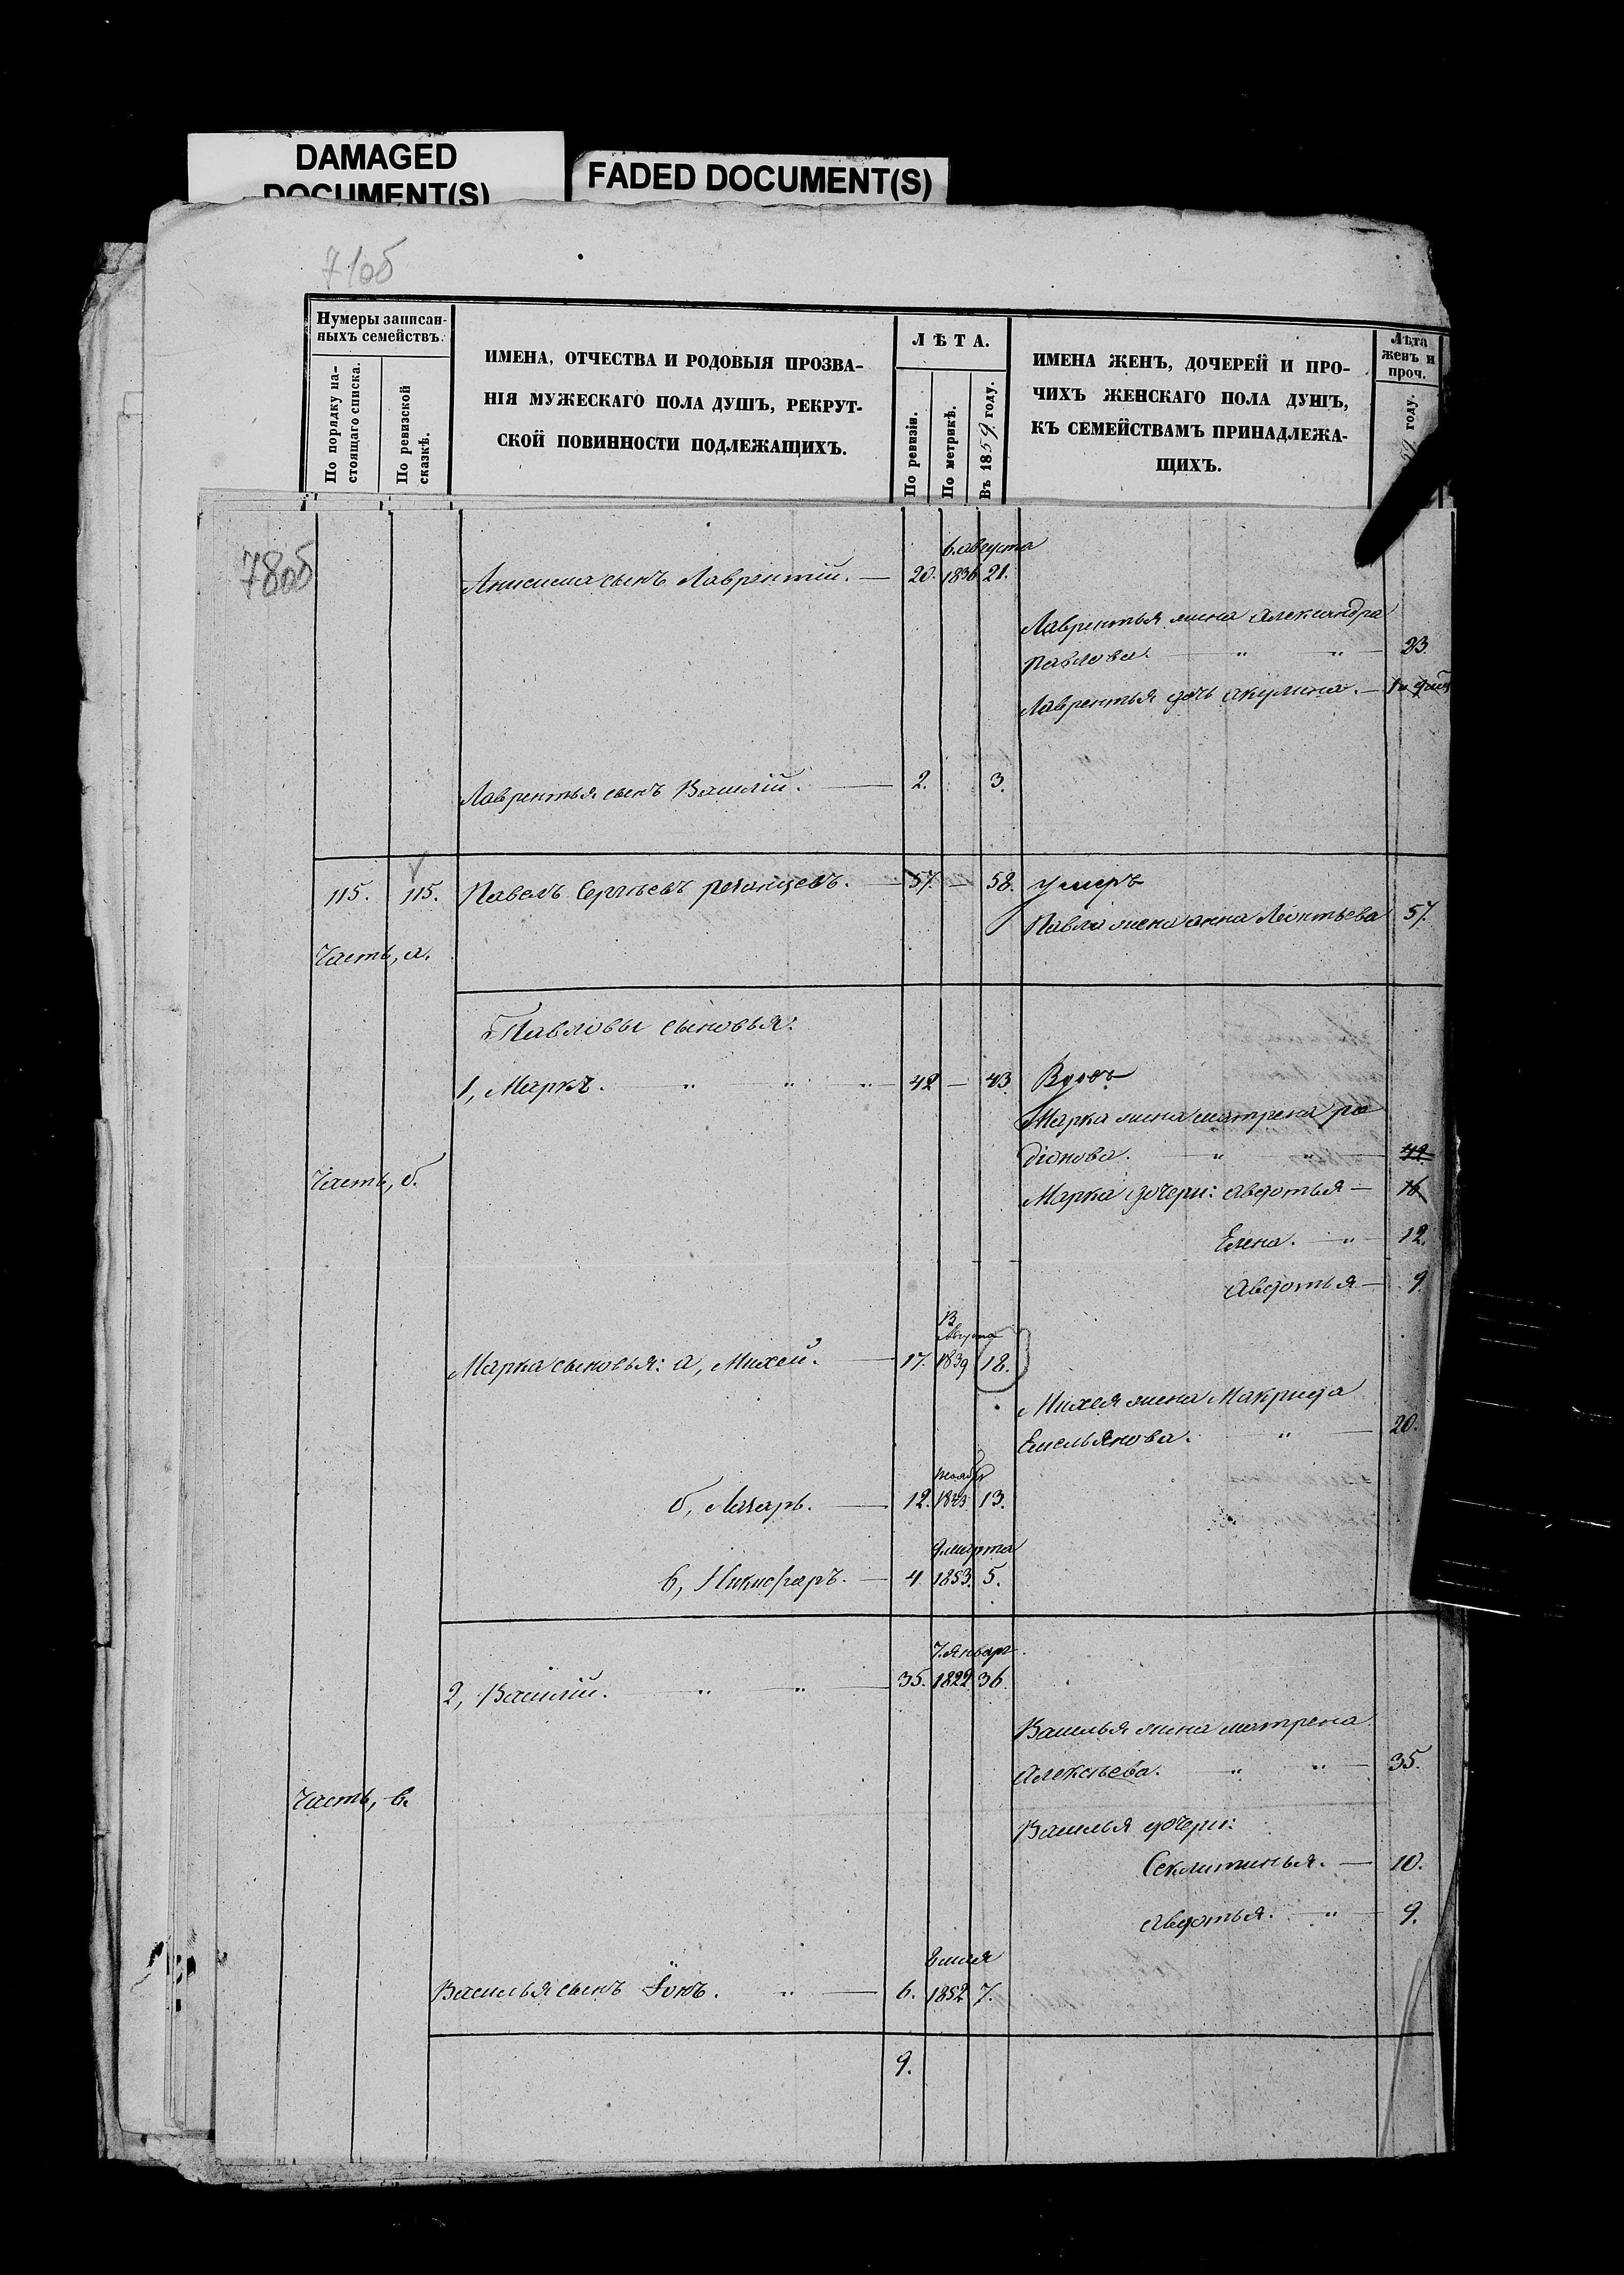 DAMAGED
DOCUMENT(S)
FADED DOCUMENT(S)
71об
Нумеры записан-
ныхъ семействъ.
По порядку на-
стоящаго списка.
По ревизской
сказкѣ.
ИМЕНА, ОТЧЕСТВА И РОДОВЫЯ ПРОЗВА-
НІЯ МУЖЕСКАГО ПОЛА ДУШЪ, РЕКРУТ-
СКОЙ ПОВИННОСТИ ПОДЛЕЖАЩИХЪ.
ЛѢТА.
По ревизіи.
По метрикѣ.
Въ 1859 году.
ИМЕНА ЖЕНЪ, ДОЧЕРЕЙ И ПРО-
ЧИХЪ ЖЕНСКАГО ПОЛА ДУШЪ,
КЪ СЕМЕЙСТВАМЪ ПРИНАДЛЕЖА-
ЩИХЪ.
Лѣта
женъ и
проч.
59 году.
78об
6. августа
Анисима сынъ Лаврентій. — 20. 1836 21.
Лаврентья жена Александра
Павлова. — " " — 23.
Лаврентья дочь Акулина. —
Лаврентья сынъ Василій. — 2. 3.
115. 115. Павелъ Сергѣевъ — 57. — 58. умеръ
Павла жена Анна Леонтьева 57.
Часть, а.
Павловы сыновья:
1, Марка. " " " 42 — 43. Вдовъ
Марка жена Матрена Ро
діонова. " " — 42.
Часть, б.
Марка дочери: Авдотья — 16
Елена. — " — 12.
Авдотья — 9.
Августа
Марка сыновья: а, Михей. — 17. 1839 18.
Михея жена Макрида
Емельянова. " — 20.
ноября
б, Лазарь. — 12. 1843. 13.
9 марта
в, Никифаръ. — 4 1853. 5.
7. Январ
2, Василій. — " " — 35. 1822 36.
Василья жена Матрена
Алексѣева. — " " — 35.
Часть, в.
Василья дочери:
Секлитинья. — 10.
Авдотья. — " — 9.
8 мая
Василья сынъ Іонъ. " — 6. 1852 7.
9.